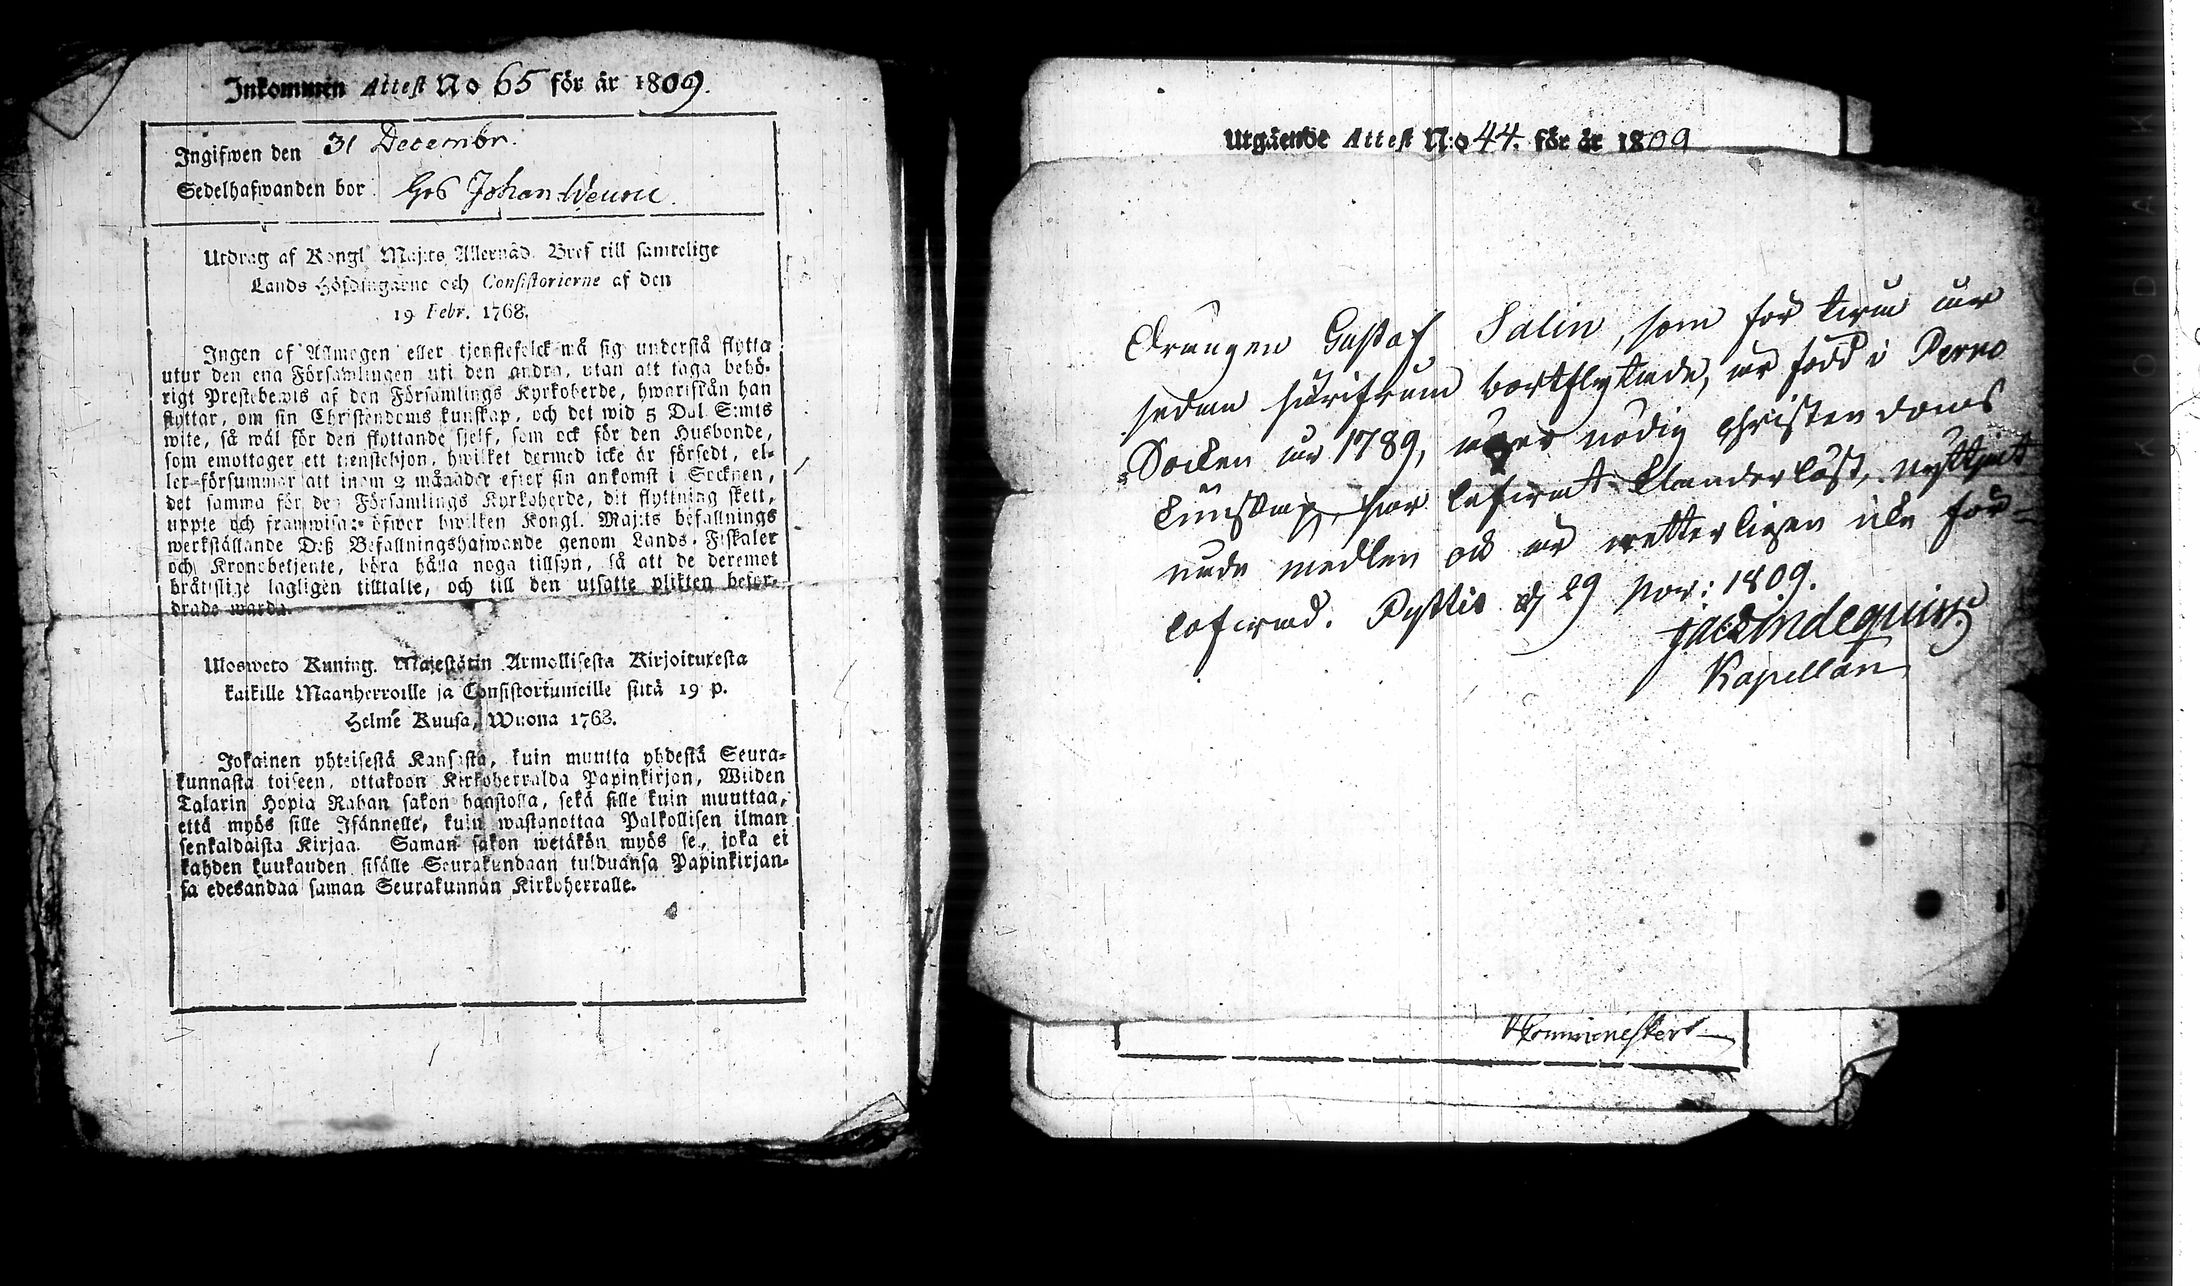 Inkommen Attest No 65 för år 1809.
Ingifwen den 31 Decembr.
Sedelhafwanden bor Hos Johan
Utdrag af Kongl Maj:ts Allernåd. Bref till samtelige
Lands Höfdingarne och Consistorierne af den
19 Febr. 1768.
Ingen af Allmogen eller tjenstefolck må sig understå flytta
utur den ena Församlingen uti den andra, utan att taga behö-
rigt Prestebewis af den Församlings Kyrkoherde, hwarifrån han
flyttar, om sin Christendoms kunskap, och det wid 5 Dal. S:mts
wite, så wäl för den flyttande sjelf, som ock för den Husbonde,
som emottager ett tjenstehjon, hwilket dermed icke är försedt, el-
ler försummar att inom 2 månader efter sin ankomst i Socknen,
det samma för den Församlings Kyrkoherde, dit flyttning skett,
uppte och framwisa: öfwer hwilken Kongl. Maj:ts befallnings
werkställande Deß Befallningshafwande genom Lands-Fiskaler
och Kronobetjente, böra hålla noga tillsyn, så att de deremot
bråtslige lagligen tilltalte, och till den utsatte plikten befor-
drade warda.
Ulosweto Kuning. Majestätin Armollisesta Kirjoituxesta
kaikille Maanherroille ja Consistoriumeille siitä 19 p.
Helmē Kuusa, Wuona 1768.
Jokainen yhteisestä Kansasta, kuin muutta yhdestä Seura-
kunnasta toiseen, ottakoon Kirkoherralda Papinkirjan, Wiiden
Talarin Hopia Rahan sakon haastolla, sekä sille kuin muuttaa,
että myös sille Isännelle, kuin wastanottaa Palkollisen ilman
senkaldaista Kirjaa. Saman sakon wetäkön myös se, joka ei
kahden kuukauden sisälle Seurakundaan tulduansa Papinkirjan-
sa edesandaa saman Seurakunnan Kirkoherralle.
Utgående Attest N:o 44. för år 1809
Drängen Gustaf Salin, som för trenne år
sedan härifrån bortflyttade, är född i Perno
Socken år 1789, äger nödig christendoms
kunskap, har lefwat klanderlöst, nyttjat
nåde medlen och är wetterligen icke för-
lofwad. Pyttis d 29 Nov: 1809.
Kapellan